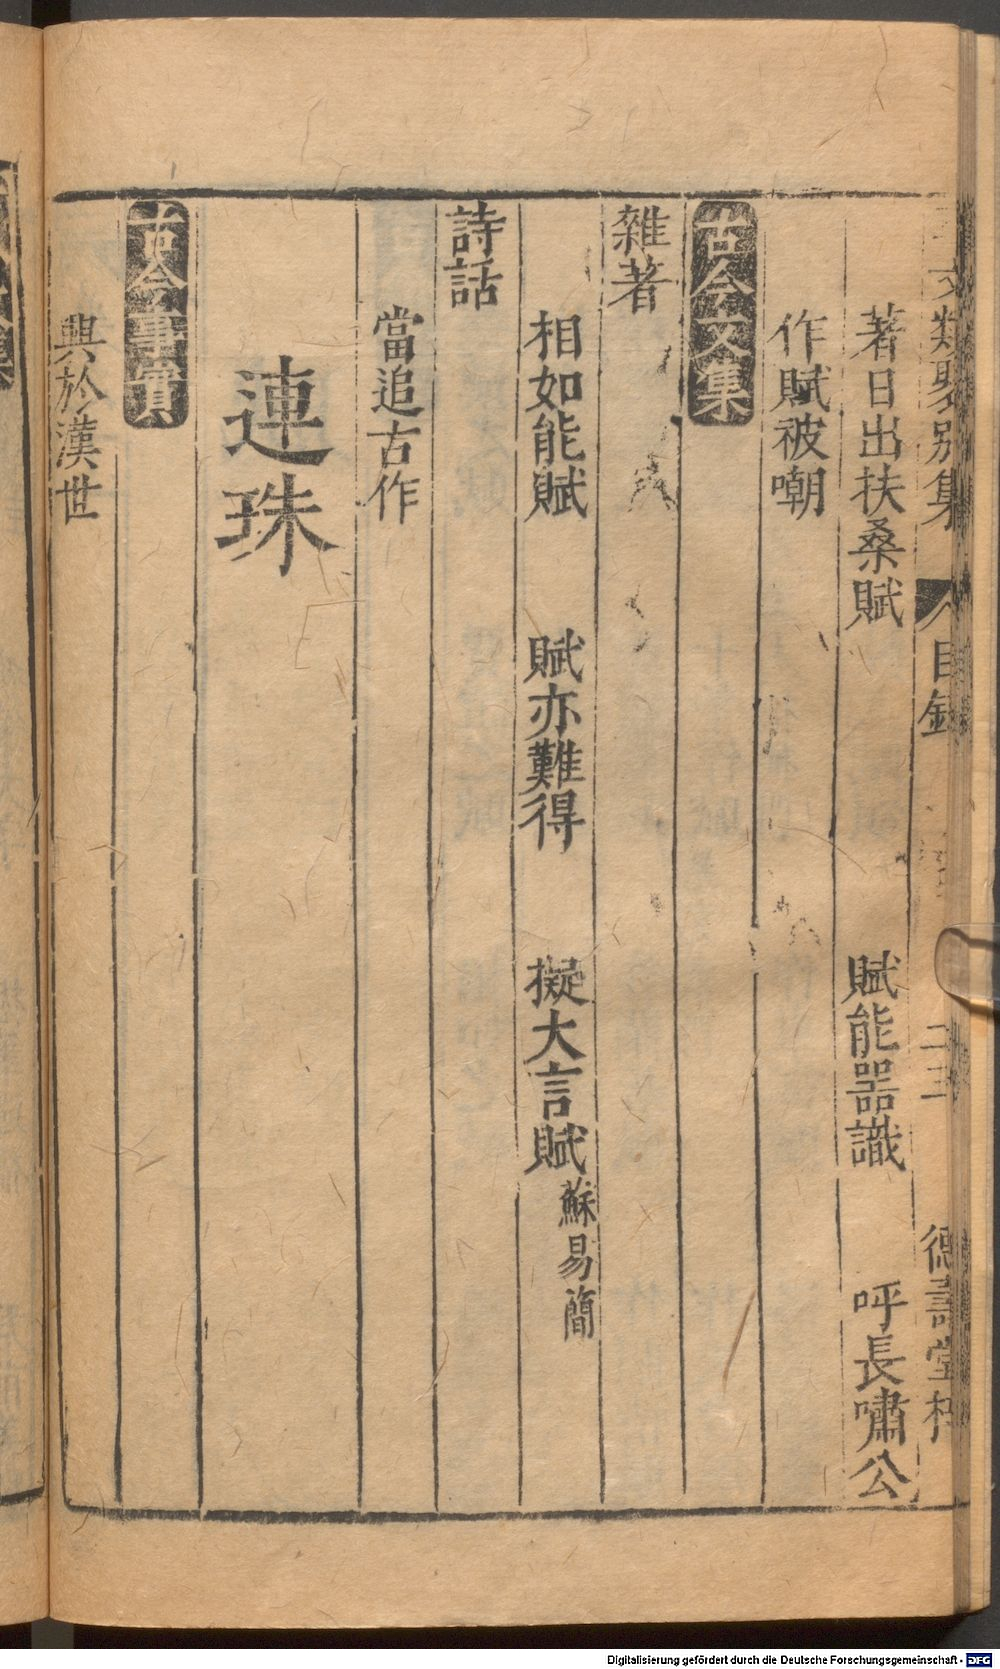 文類聚別集 目錄 二三 德壽堂梓
著日出扶桑賦 賦能器識 呼長嘯公
作賦被嘲
古今文集
雜著
相如能賦 賦亦難得 擬大言賦 蘇易簡
詩話
當追古作
連珠
古今事實
興於漢世
Digitalisierung gefördert durch die Deutsche Forschungsgemeinschaft - DFG